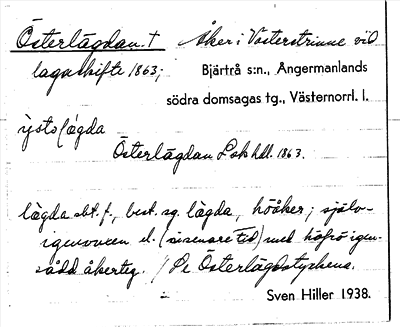 Österlägdan. † Åker i Västerstrinne vid
laga skifte 1863;
Bjärtrå s:n., Ångermanlands
södra domsagas tg., Västernorrl. l.
Österlägdan Lsk hdl. 1863.
lägda sbt. f., best. sg. lägda, höåker; själv-
igenvuxen el. (i senare tid) med höfrö igen-
sådd åkerteg. / Se Österlägdstyckena.
Sven Hiller 1938.